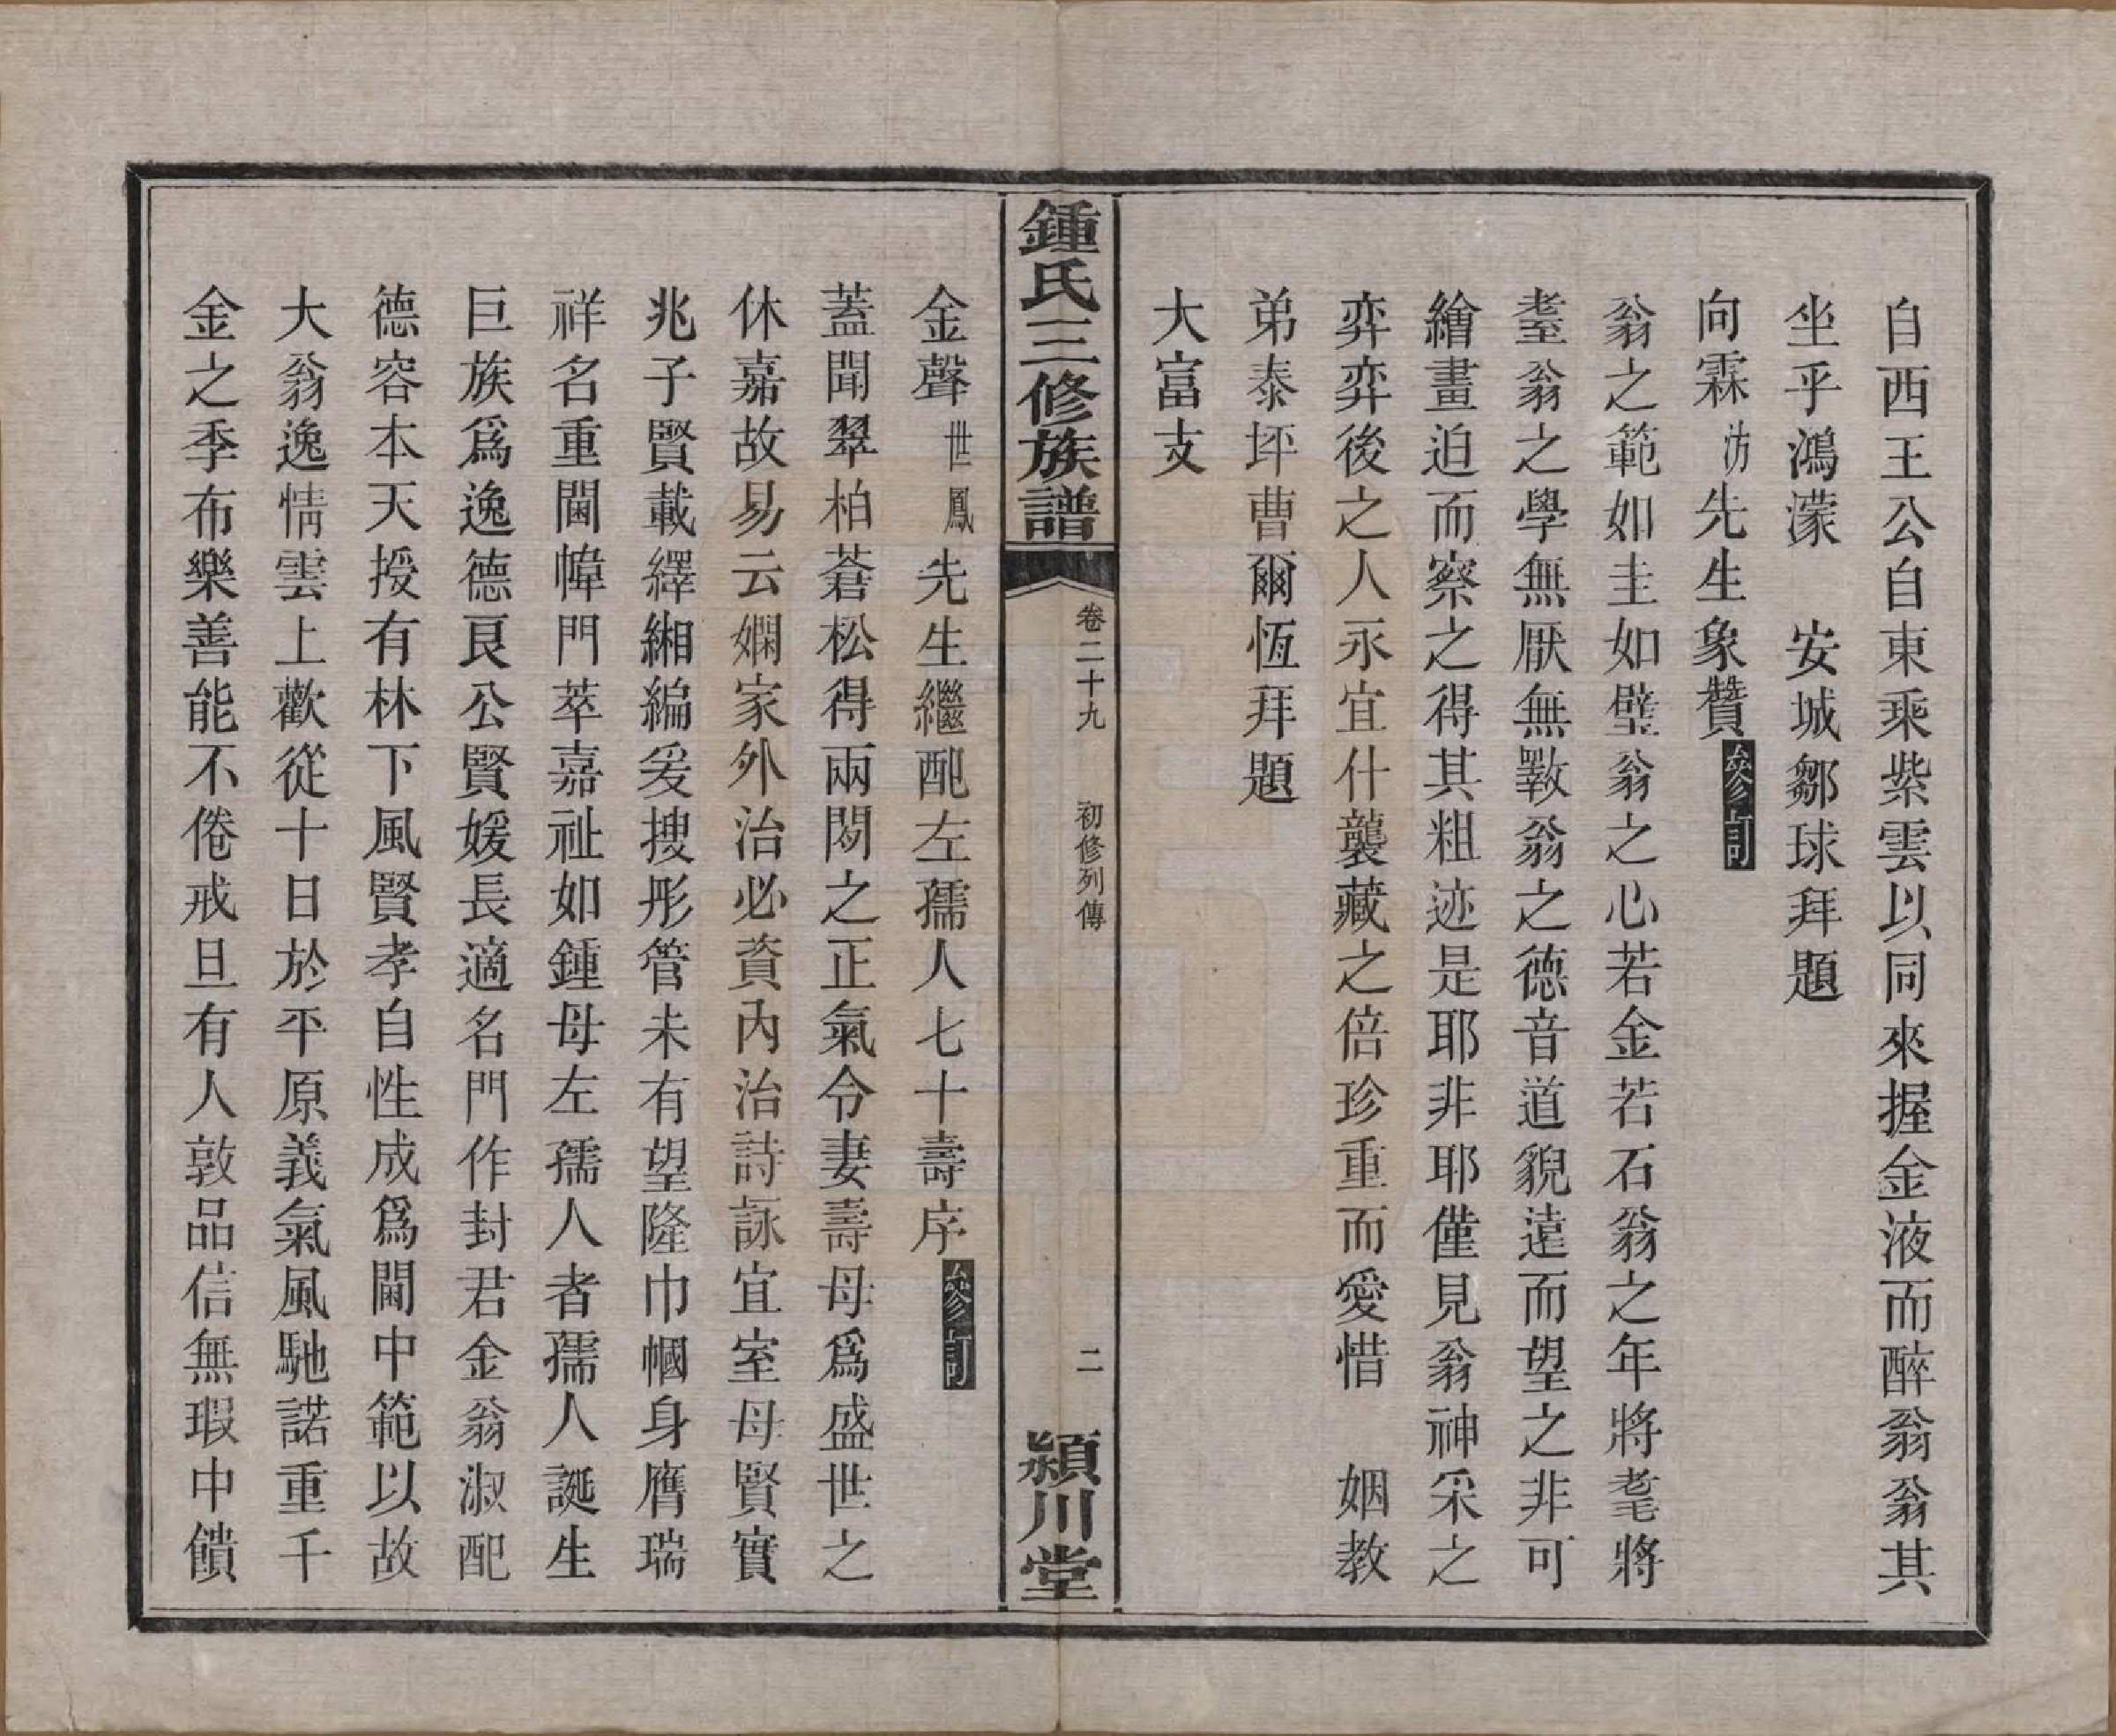 自西王公自東乘紫雲以同來握金液而醉翁翁其
坐乎鴻濛　安城鄒球拜題
向霖汸先生象贊參訂
翁之範如圭如璧翁之心若金若石翁之年將耄將
耋翁之學無厭無斁翁之德音道貌遠而望之非可
繪畫迫而察之得其粗迹是耶非耶僅見翁神采之
弈弈後之人永宜什襲藏之倍珍重而愛惜　姻教
弟泰坪曹爾恆拜題
大富支
鍾氏三修族譜
卷二十九　初修列傳
二
潁川堂
金聲世鳳先生繼配左孺人七十壽序參訂
蓋聞翠柏蒼松得兩閒之正氣令妻壽母爲盛世之
休嘉故易云嫻家外治必資內治詩詠宜室母賢實
兆子賢載繹緗編爰搜彤管未有望隆巾幗身膺瑞
祥名重閫幃門萃嘉祉如鍾母左孺人者孺人誕生
巨族爲逸德良公賢媛長適名門作封君金翁淑配
德容本天授有林下風賢孝自性成爲閫中範以故
大翁逸情雲上歡從十日於平原義氣風馳諾重千
金之季布樂善能不倦戒旦有人敦品信無瑕中饋